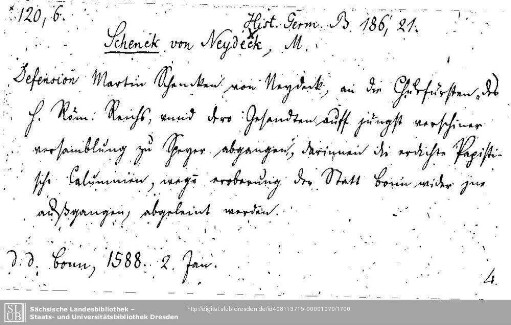 120, 6.
Hist. Germ. B. 186, 21.
Schenck von Neydeck, M.
Defension Martin Schencken von Neydeck, an die Churfürsten des
H. Röm: Reichs, unnd dero Gesandten auff jüngst verschiner
versamblung zu Speyer abgangen, darinnen die erdichte Papisti-
sche Calumnien, wege eroberung der Statt Bonn wider jne
außgangen, abgeleint werden.
d. d. Bonn, 1588. 2 Jan.
4.
SLUB
Sächsische Landesbibliothek –
Staats- und Universitätsbibliothek Dresden